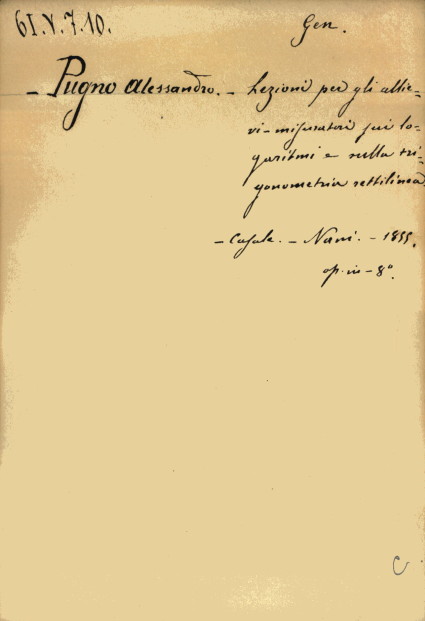 61.V.7.10.
Gen.
- Pugno Alessandro. - Lezioni per gli allie-
vi-misuratori sui lo-
garitmi e sulla tri-
gonometria rettilinea.
- Casale. - Nani. - 1855.
op. in - 8°.
C